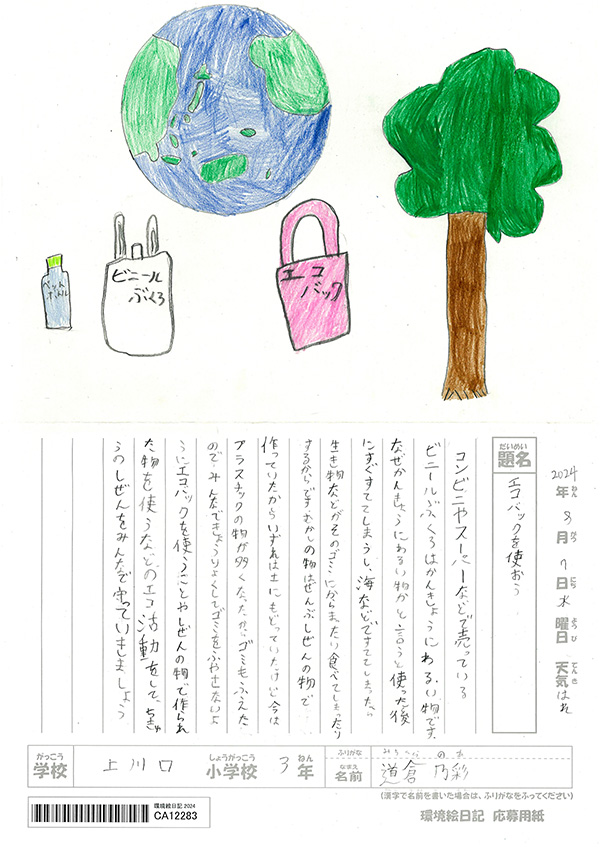 ペット
ボトル
ビニール
ぶくろ
エコ
バック
2024年 8月 7日 水曜日 天気 はれ
ねん がつ にち ようび てんき
だいめい
題名
エコバックを使おう
コンビニやスーパーなどで売っている
ビニールぶくろはかんきょうにわるい物です。
なぜかんきょうにわるい物かと言うと使った後
にすぐすててしまうし、海などですててしまったら
生き物などがそのゴミにからまったり食べてしまったり
するからです。むかしの物はぜんぶしぜんの物で
作っていたからいずれは土にもどっていたけど今は
プラスチックの物が多くなったからゴミもふえた
のでみんなできょうりょくしてゴミをふやさないよ
うにエコバックを使うことやしぜんの物で作られ
た物を使うなどのエコ活動をして、ちきゅ
うのしぜんをみんなで守っていきましょう
がっこう
学校
上川口
しょうがっこう
小学校
3年
ねん
ふりがな
みちくら のあ
なまえ
名前
道倉 乃彩
(漢字で名前を書いた場合は、ふりがなをふってください)
環境絵日記 2024
CA12283
環境絵日記 応募用紙